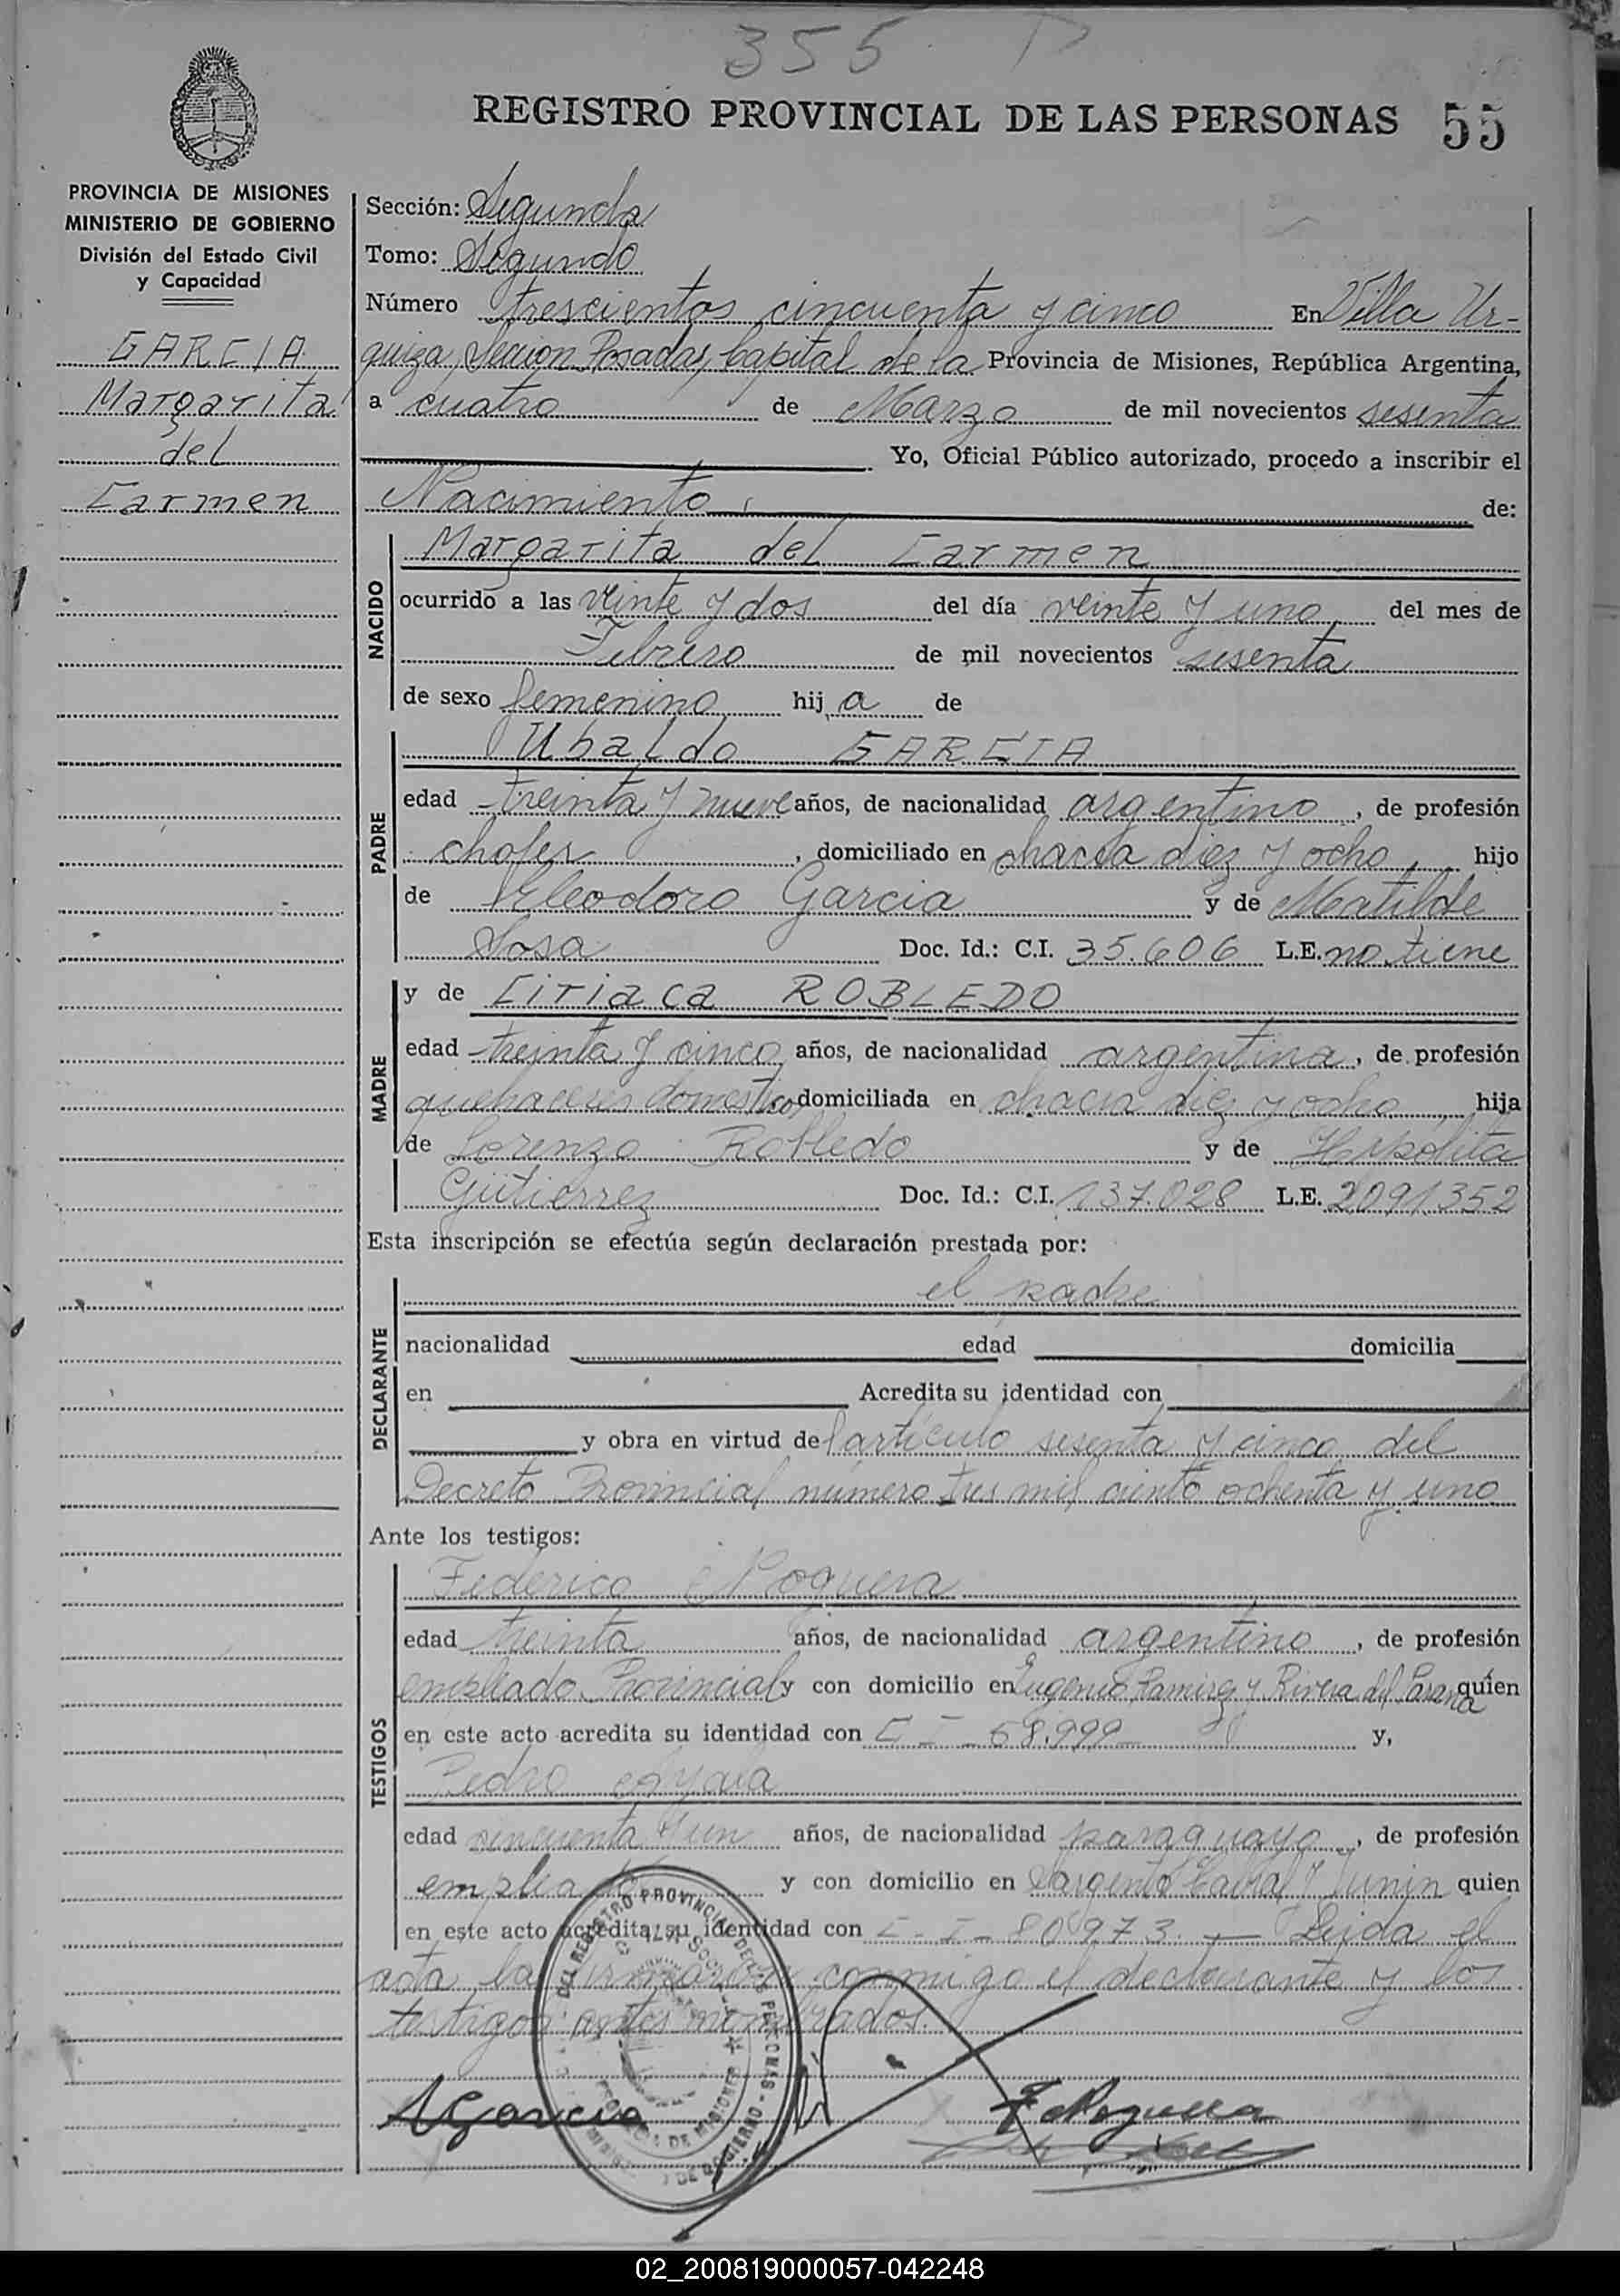 355
REGISTRO PROVINCIAL DE LAS PERSONAS 55
PROVINCIA DE MISIONES
MINISTERIO DE GOBIERNO
División del Estado Civil
y Capacidad
GARCIA
Margarita
del
Carmen
Sección: Segunda
Tomo: Segundo
Número trescientos cincuenta y cinco En Villa Ur-
quiza, Sección Posadas, Capital de la Provincia de Misiones, República Argentina,
a cuatro de Marzo de mil novecientos sesenta
Yo, Oficial Público autorizado, procedo a inscribir el
Nacimiento de:
NACIDO
Margarita del Carmen
ocurrido a las veinte y dos del día veinte y uno del mes de
Febrero de mil novecientos sesenta
de sexo femenino hij a de
PADRE
Ubaldo GARCIA
edad treinta y nueve años, de nacionalidad argentino, de profesión
chofer, domiciliado en chacra diez y ocho, hijo
de Eleodoro Garcia y de Matilde
Sosa Doc. Id.: C.I. 35.606 L.E. no tiene
MADRE
y de Ciriaca ROBLEDO
edad treinta y cinco años, de nacionalidad argentina, de profesión
quehaceres domésticos domiciliada en chacra diez y ocho, hija
de Lorenzo Robledo y de Hipólita
Gutierrez Doc. Id.: C.I. 137.028 L.E. 2091.352
Esta inscripción se efectúa según declaración prestada por:
DECLARANTE
el padre
nacionalidad edad domicilia
en Acredita su identidad con
y obra en virtud del artículo sesenta y cinco del
Decreto Provincial número tres mil ciento ochenta y uno
Ante los testigos:
TESTIGOS
Federico Noguera
edad treinta años, de nacionalidad argentino, de profesión
empleado Provincial y con domicilio en Eugenio Ramirez y Rivera del Paraná quien
en este acto acredita su identidad con C I 58.999 y,
Pedro Ayala
edad cincuenta y un años, de nacionalidad paraguayo, de profesión
empleado y con domicilio en Sargento Cabral y Junin quien
en este acto acredita su identidad con C.I. 80973. — Leída el
acta la firmaron conmigo el declarante y los
testigos antes nombrados.
UGarcia
F Noguera
02_200819000057-042248